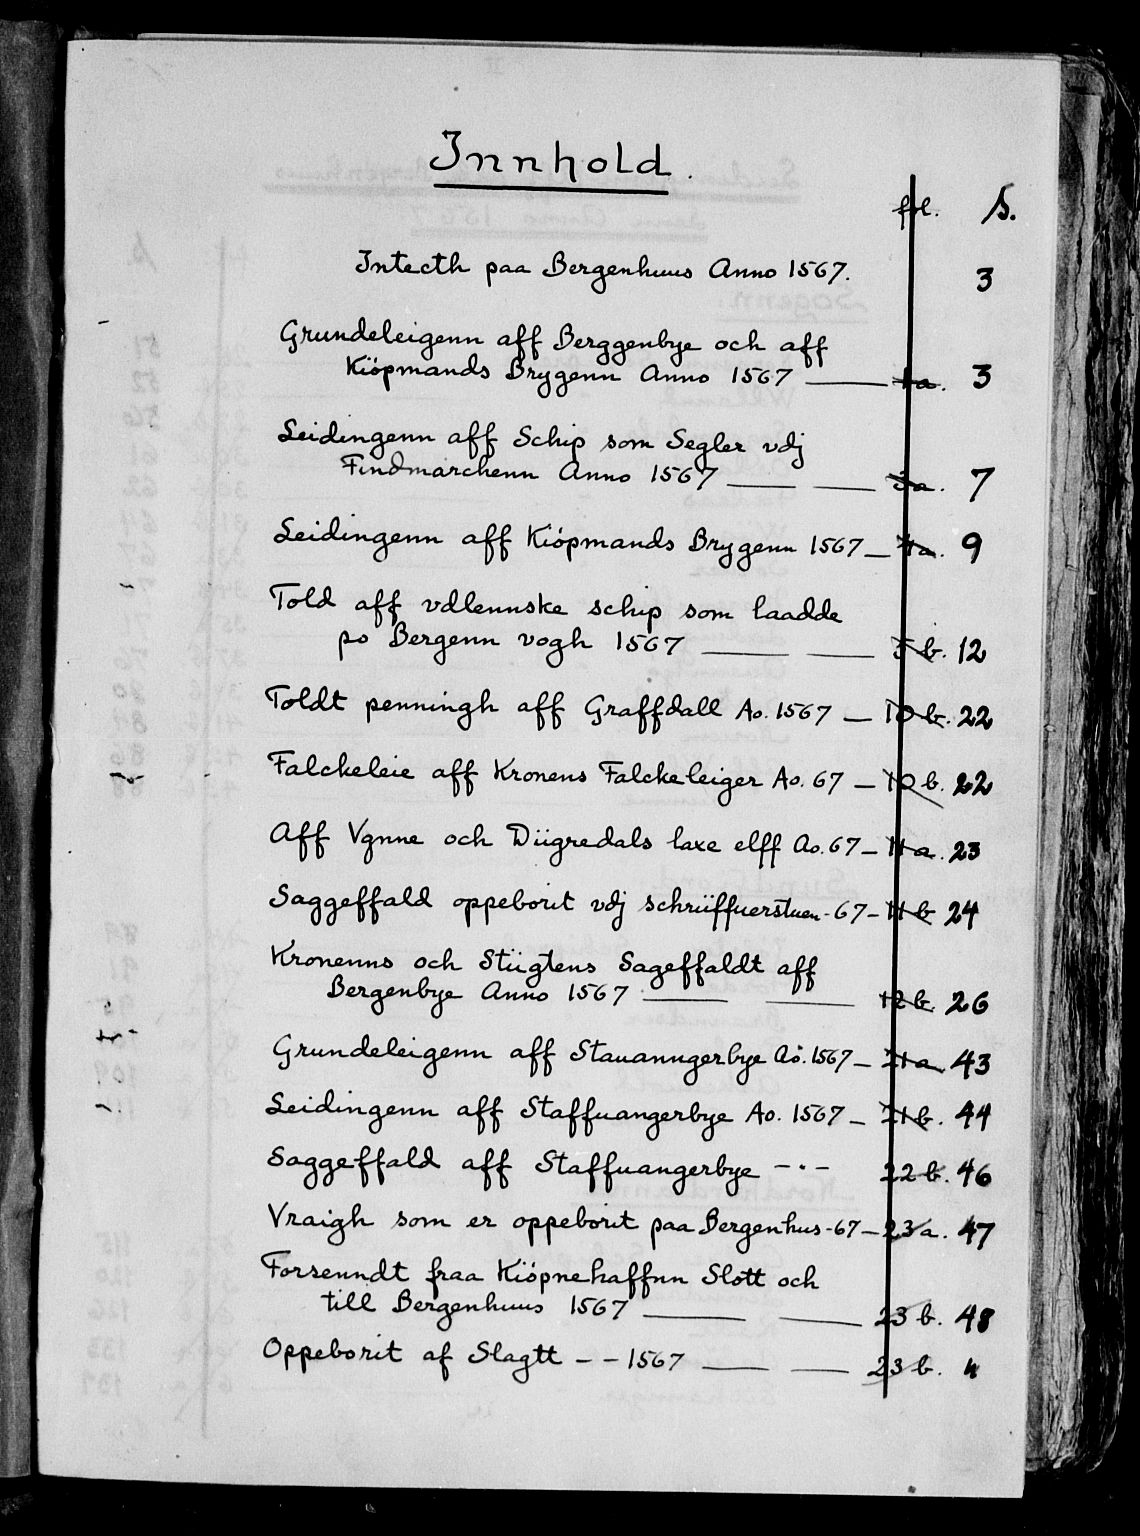 Innhold.
fol. S.
Intecth paa Bergenhuus Anno 1567. 3
Grundeleigenn aff Berggenbye och aff
Kiöpmands Brygenn Anno 1567 —— 1a. 3
Leidingenn aff Schip som Segler vdj
Findmarchenn Anno 1567 — — 3a. 7
Leidingenn aff Kiöpmands Brygenn 1567 — 4a. 9
Told aff vdlennske schip som laadde
po Bergenn vogh 1567 — — 5 b. 12
Toldt penningh aff Graffdall Ao. 1567 — 10 b. 22
Falckeleie aff Kronens Falckeleiger Ao. 67 — 10 b. 22
Aff Vgnne och Diigredals laxe elff Ao. 67 — 11 a. 23
Saggeffald oppeborit vdj schriiffuerstuen - 67 - 11 b 24
Kronenns och Stiigtens Sageffaldt aff
Bergenbye Anno 1567 — — 12 b. 26
Grundeleigenn aff Stauanngerbye Ao. 1567 — 21 a. 43
Leidingenn aff Staffuangerbye Ao. 1567 — 21 b. 44
Saggeffald aff Staffuangerbye - " - 22 b. 46
Vraigh som er oppeborit paa Bergenhus - 67 — 23 a. 47
Forsenndt fraa Kiöpnehaffnn Slott och
till Bergenhuus 1567 — — 23 b. 48
Oppeborit af Slagtt - - 1567 — — 23 b. "